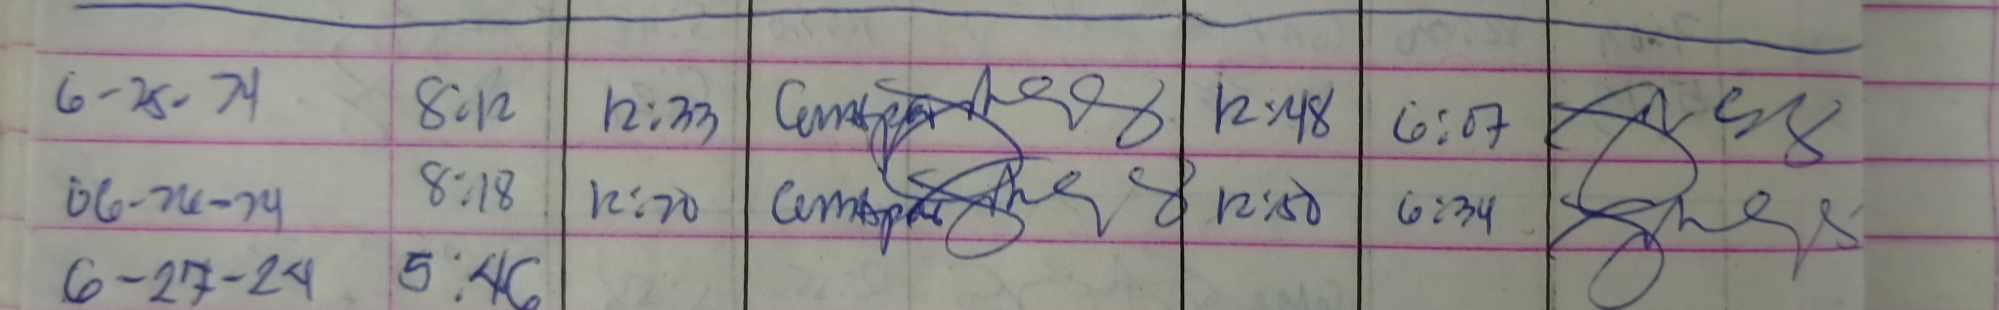 6-25-24 8:12 12:33 12:48 6:07
06-26-24 8:18 12:20 12:50 6:34
6-27-24 5:46